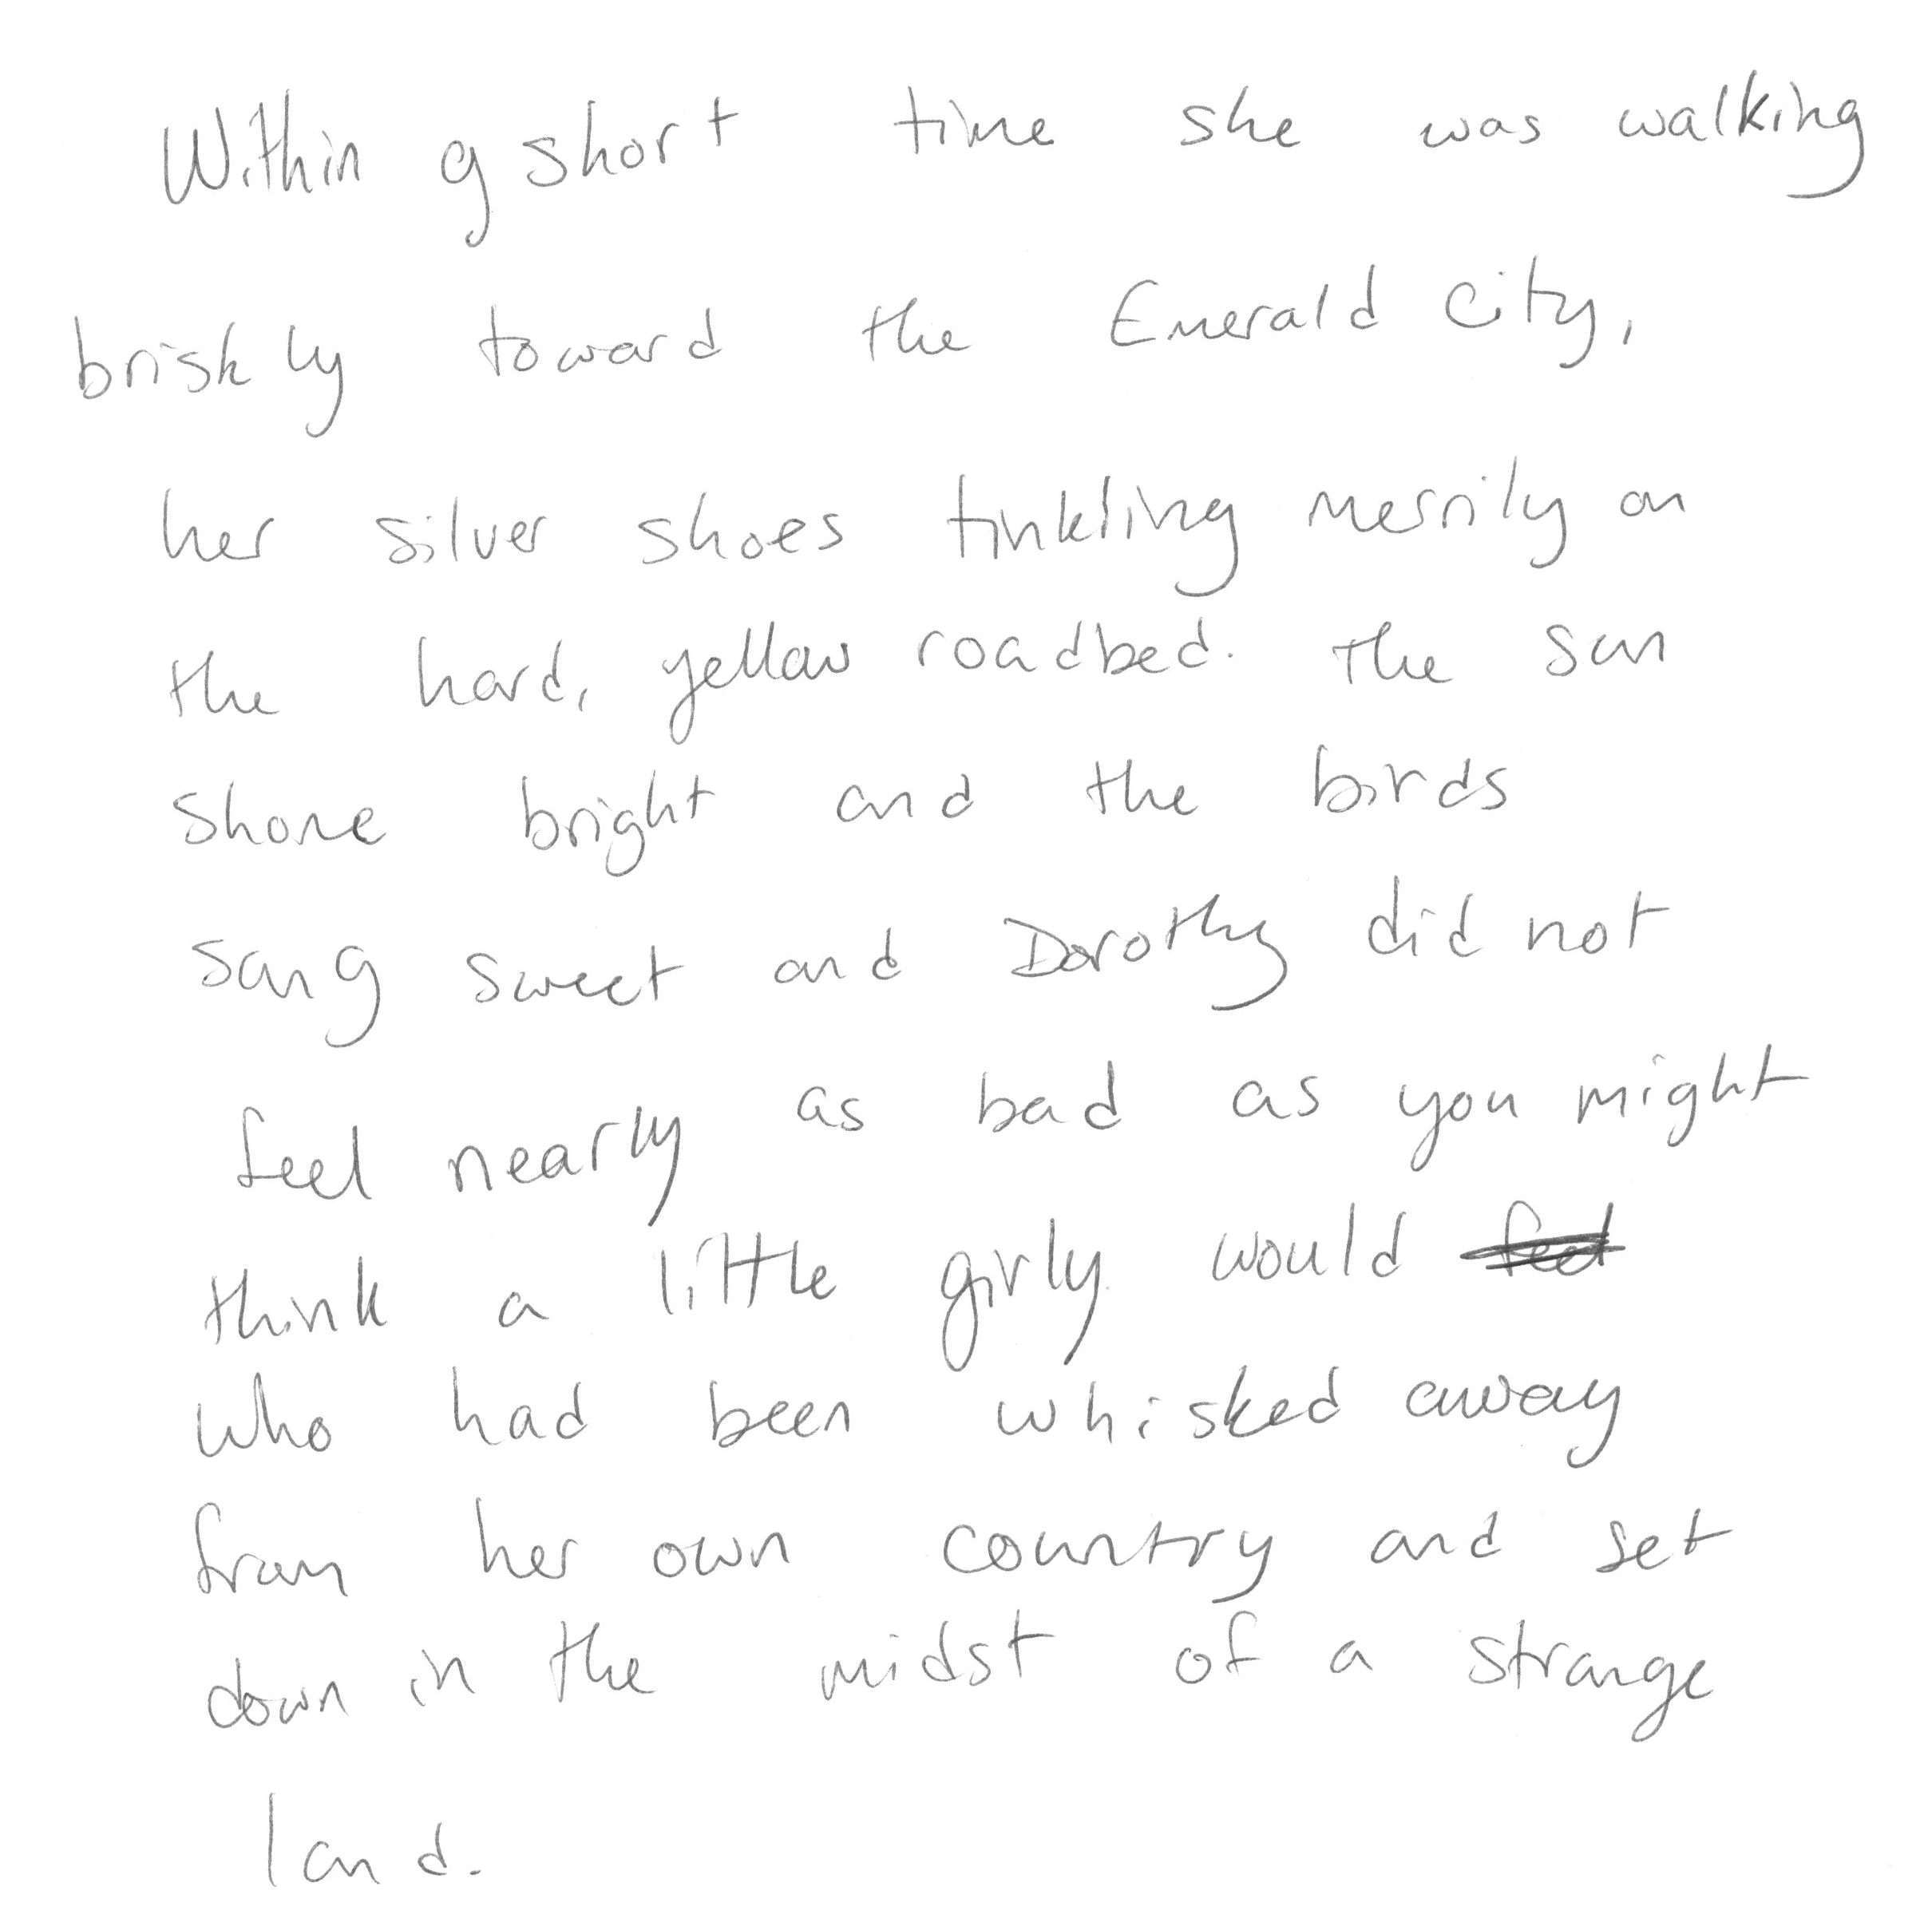 Within g short time she was walking
briskly toward the Emerald City,
her silver shoes tinkling merrily on
the hard, yellow roadbed. The sun
shone bright and the birds
sang sweet and Dorothy did not
feel nearly as bad as you might
think a little girly would feel
who had been whisked away
from her own country and set
down in the midst of a strange
land.